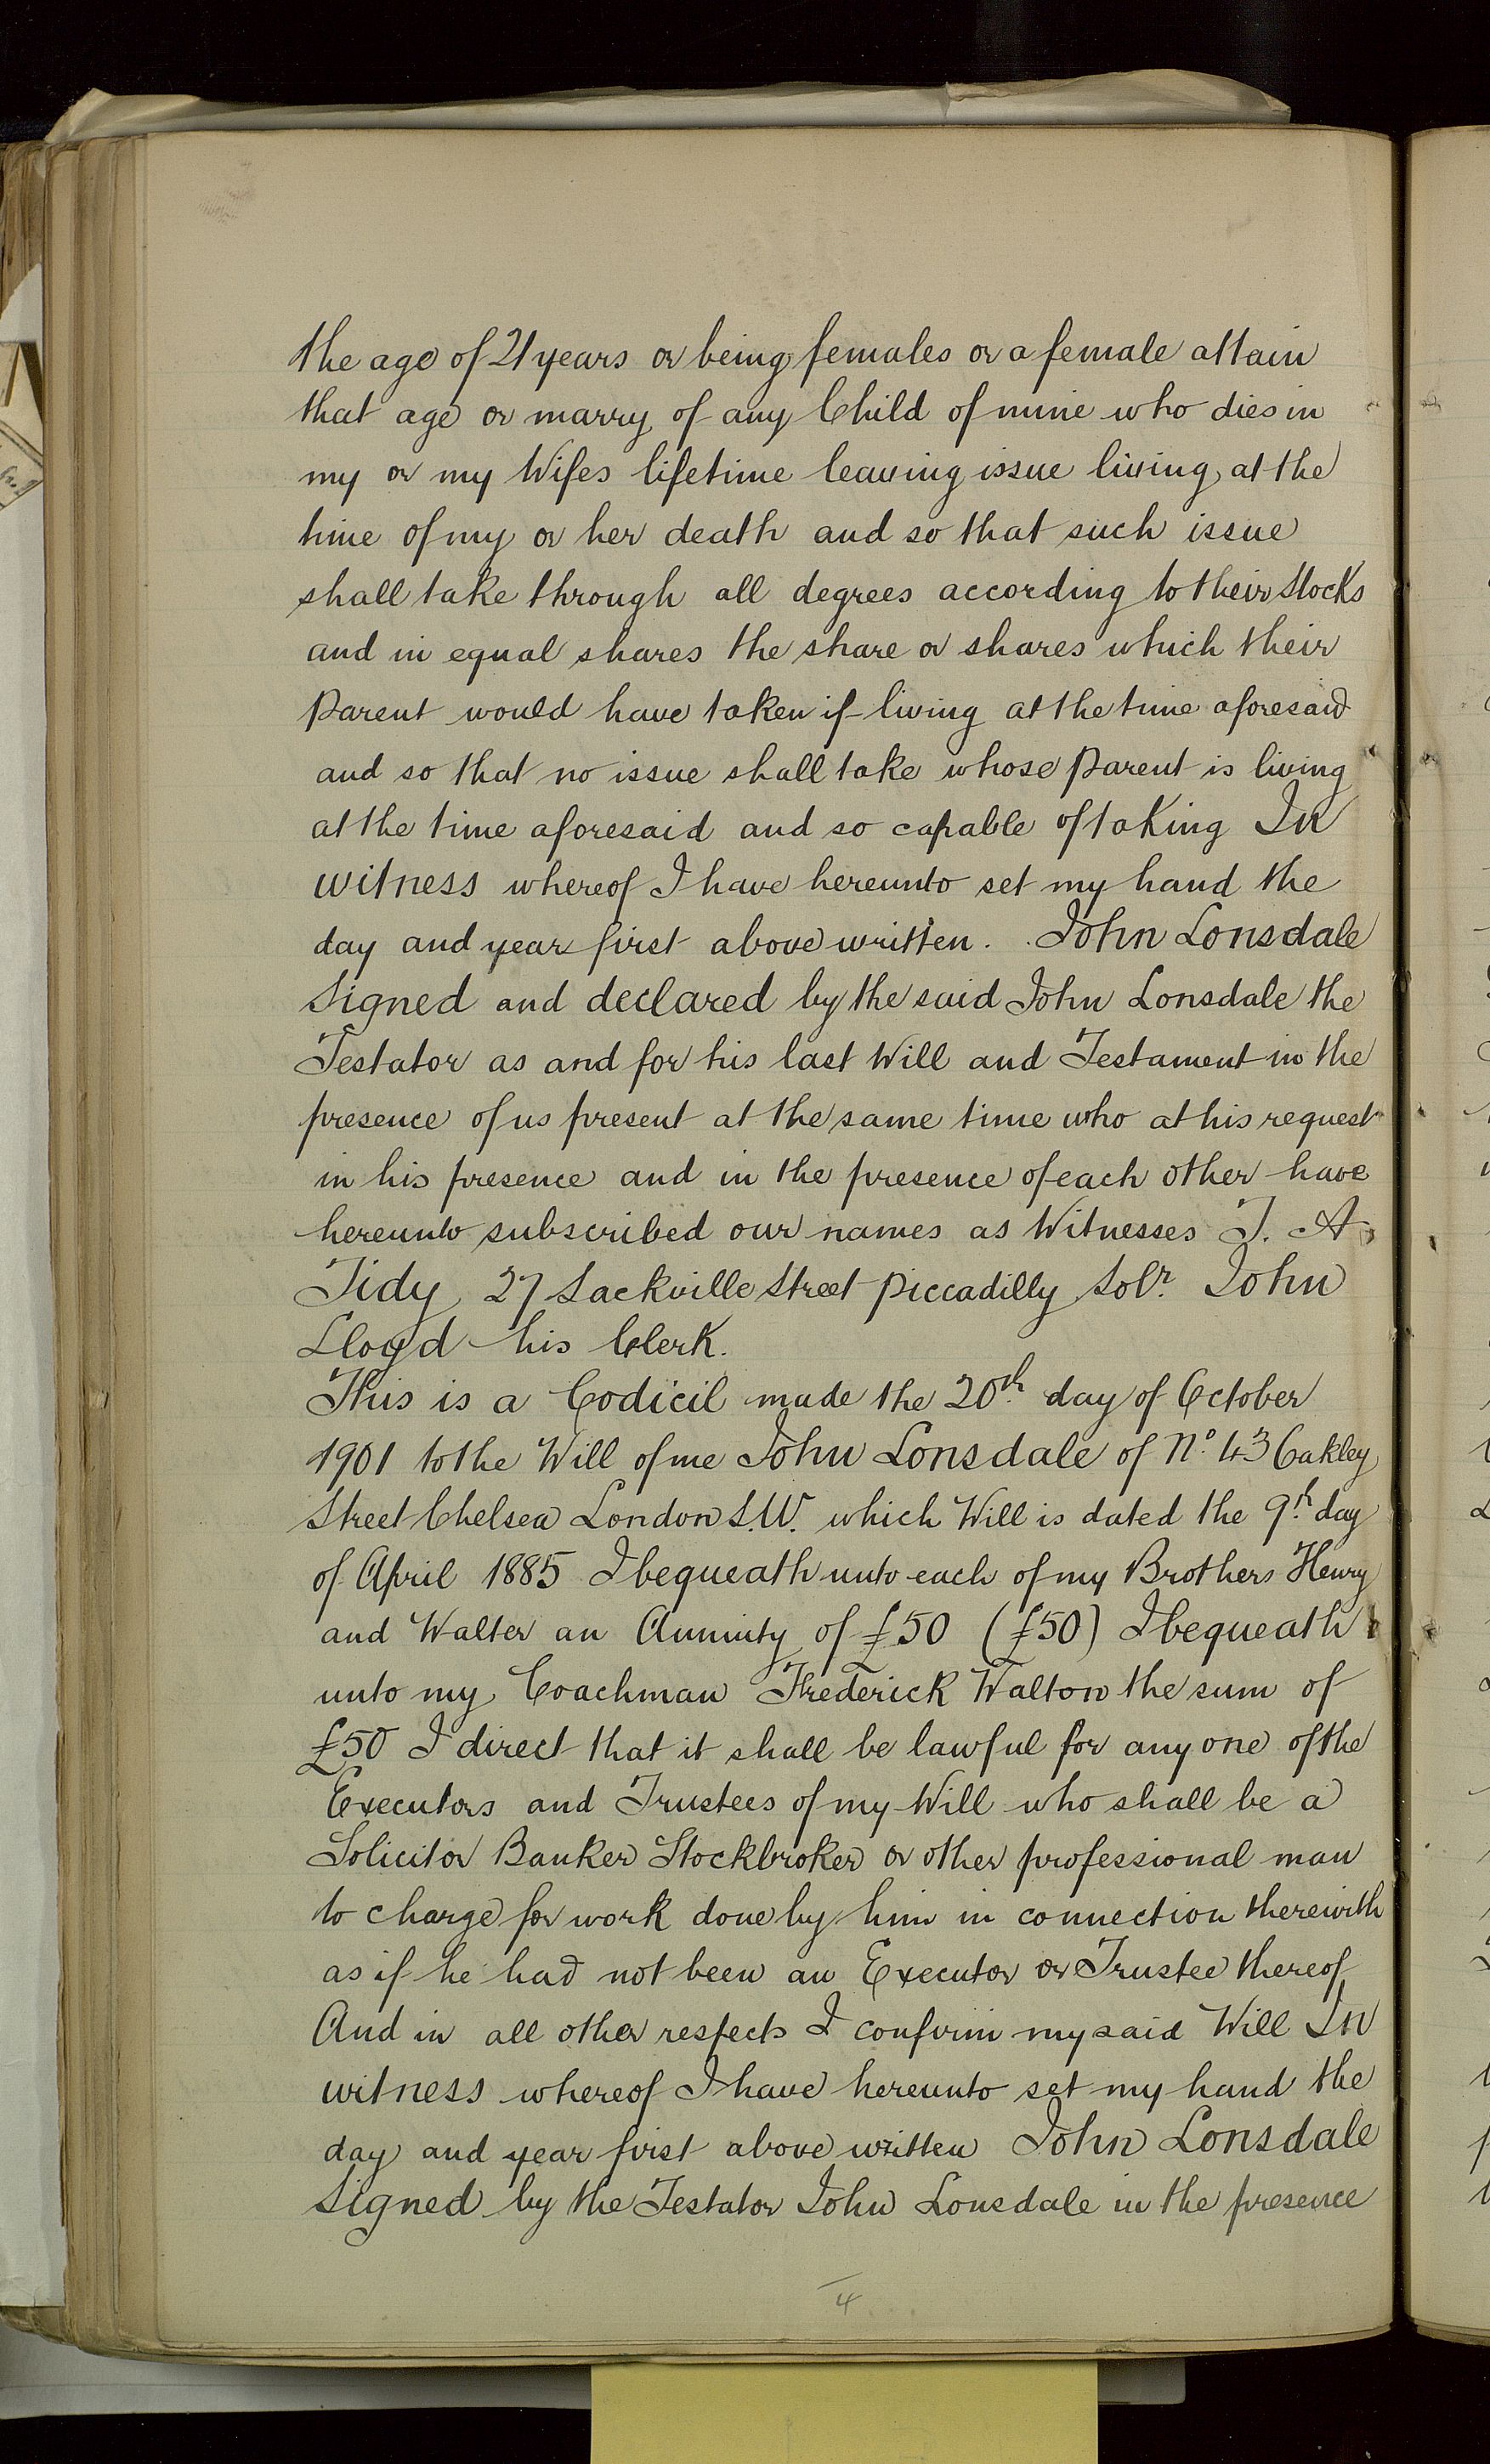 the age of 21 years or being females or a female attain
that age or marry of any Child of mine who dies in
my or my Wifes lifetime leaving issue living at the
time of my or her death and so that such issue
shall take through all degrees according to their stocks
and in equal shares the share or shares which their
parent would have taken if living at the time aforesaid
and so that no issue shall take whose parent is living
at the time aforesaid and so capable of taking In
witness whereof I have hereunto set my hand the
day and year first above written. John Lonsdale
Signed and declared by the said John Lonsdale the
Testator as and for his last Will and Testament in the
presence of us present at the same time who at his request
in his presence and in the presence of each other have
hereunto subscribed our names as Witnesses T. A.
Tidy 27 Sackville Street Piccadilly Solr. John
Lloyd his Clerk.
This is a Codicil made the 20th. day of October
1901 to the Will of me John Lonsdale of No. 43 Oakley
Street Chelsea London S.W. which Will is dated the 9th. day
of April 1885 I bequeath unto each of my Brothers Henry
and Walter an Annuity of £50 (£50) I bequeath
unto my Coachman Frederick Walton the sum of
£50 I direct that it shall be lawful for any one of the
Executors and Trustees of my Will who shall be a
Solicitor Banker Stockbroker or other professional man
to charge for work done by him in connection therewith
as if he had not been an Executor or Trustee thereof
And in all other respects I confirm my said Will In
witness whereof I have hereunto set my hand the
day and year first above written John Lonsdale
Signed by the Testator John Lonsdale in the presence
4